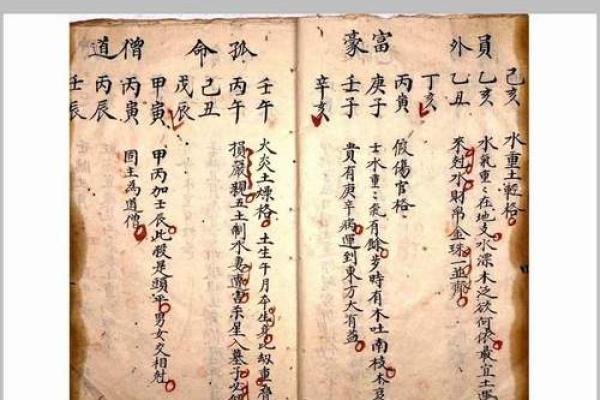 員外
己亥
乙亥
乙丑
丁亥
水重土輕格
水氣重々在地支水深木泛欲何依最宜土運
來尅水財帛金珠一並齊
富豪
丙寅
庚子
壬子
辛亥
假傷官格
壬水重々氣有餘岁時有木吐南枝
貴有庚辛病運到東方大有益
孤命
壬午
丙午
己丑
戊辰
火炎土燥格 土生午月
損嚴親五土制水妻星入墓子必
僧道
甲寅
丙寅
丙辰
壬辰
甲丙加壬辰此殺是頭平男女交相尅
固主為道僧